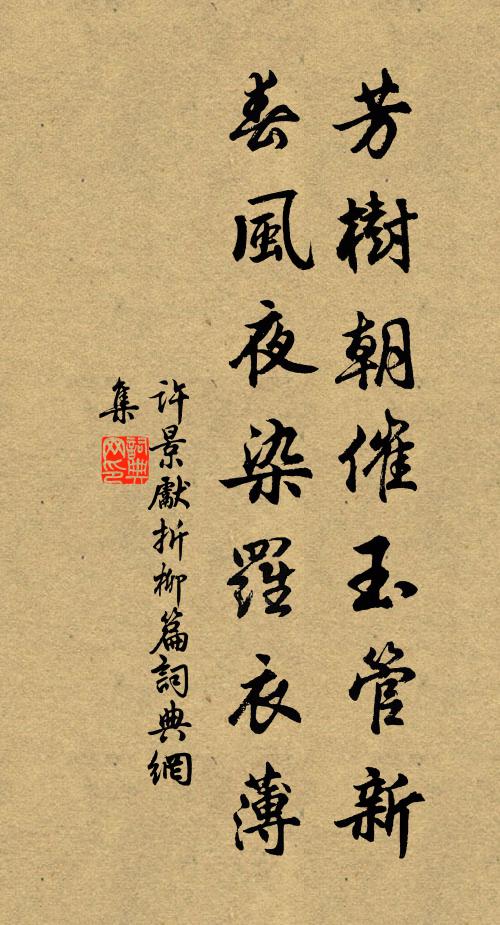 芳樹朝催玉管新
春風夜染羅衣薄
許景獻折柳篇詞典網
集
詞典
网印